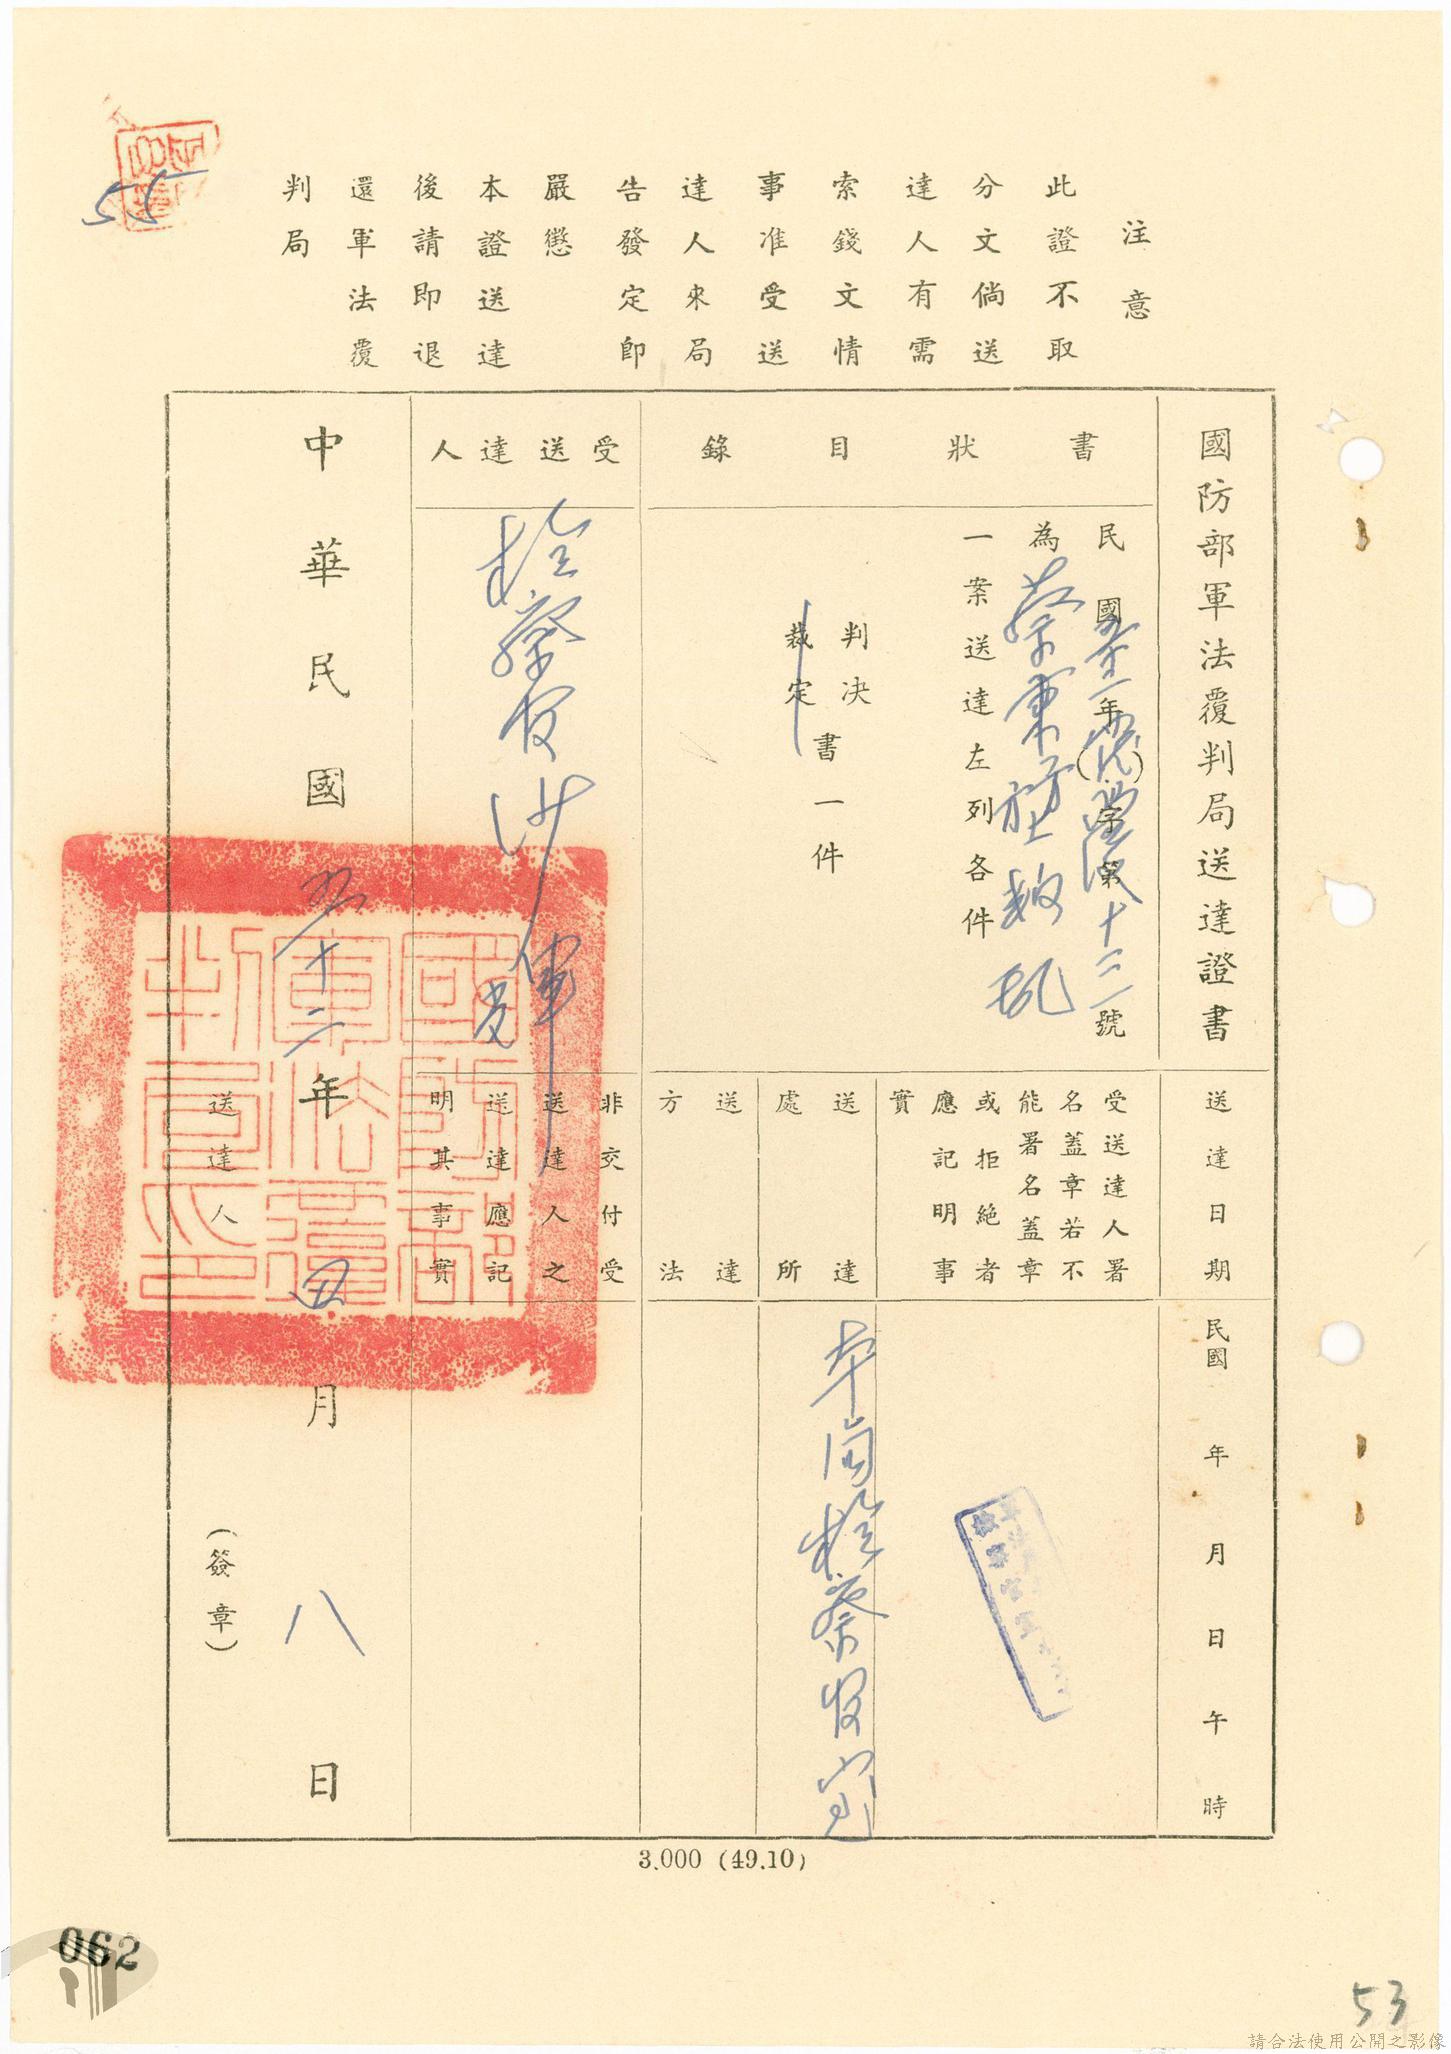 注意
此證不取
分文倘送
達人有需
索錢文情
事准受送
達人來局
告發定即
嚴懲
本證送達
後請即退
還軍法覆
判局
55
國防部軍法覆判局送達證書
書狀目錄
民國五十一年()字第十三號
為蔡東
一案送達左列各件
判決
裁定
書一件
受送達人
檢察官沙軍
中華民國五十二年四月八日
送達人
(簽章)
送達日期
民國 年 月 日 午 時
受送達人署
名蓋章若不
能署名蓋章
或拒絕者
應記明事
實
送達
處所
本局檢察官室
送達
方法
非交付受
送達人之
送達應記
明其事實
國防部
軍法覆
判局印
3.000 (49.10)
062
53
請合法使用公開之影像